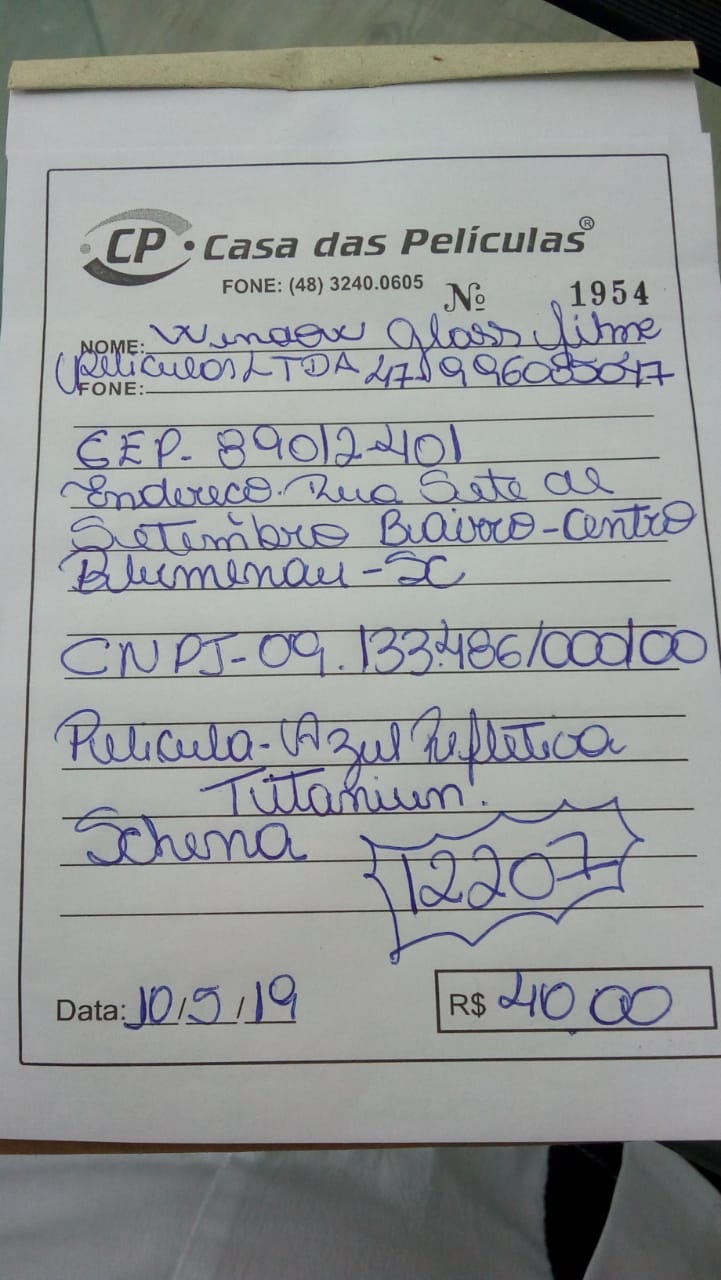 CP Casa das Películas®
FONE: (48) 3240.0605 Nº 1954
NOME: Window Glass filme
Películas LTDA 47 996085047
FONE:
CEP- 89012-401
Endereco. Rua Sete de
Setembro Bairro-Centro
Blumenau-SC
CNPJ-09.133.486/000100
Pelicula-Azul Refletiva
Tittanium.
Schena
12207
Data: 10/5/19 R$ 40,00